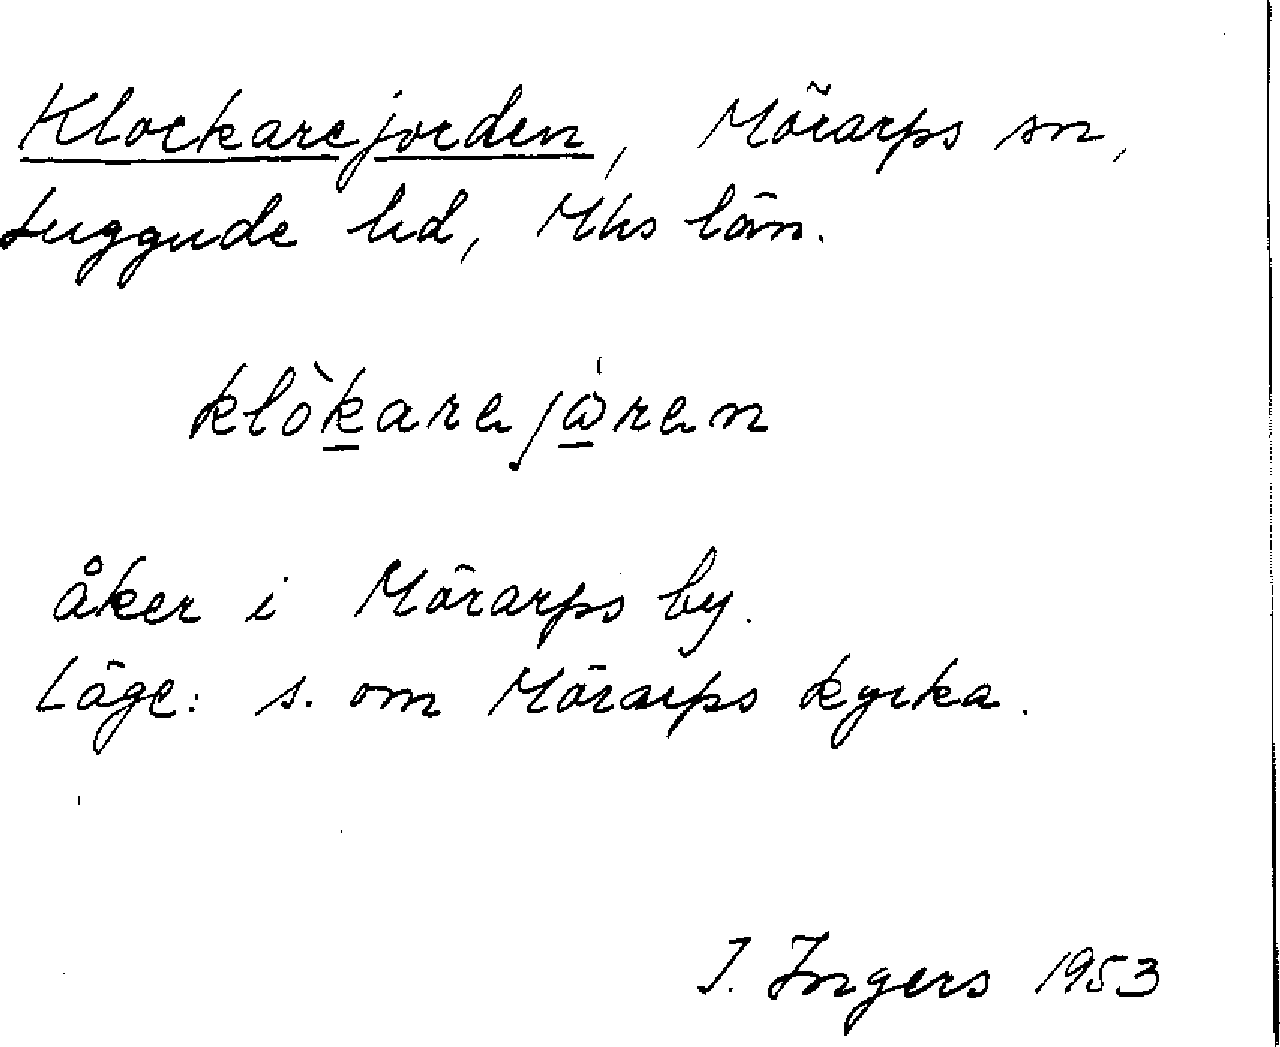 Klockarejorden, Mörarps sn,
Luggude hd, Mhs län.
klòkarejɷ́ren
åker i Mörarps by.
Läge: s. om Mörarps kyrka.
I. Ingers 1953